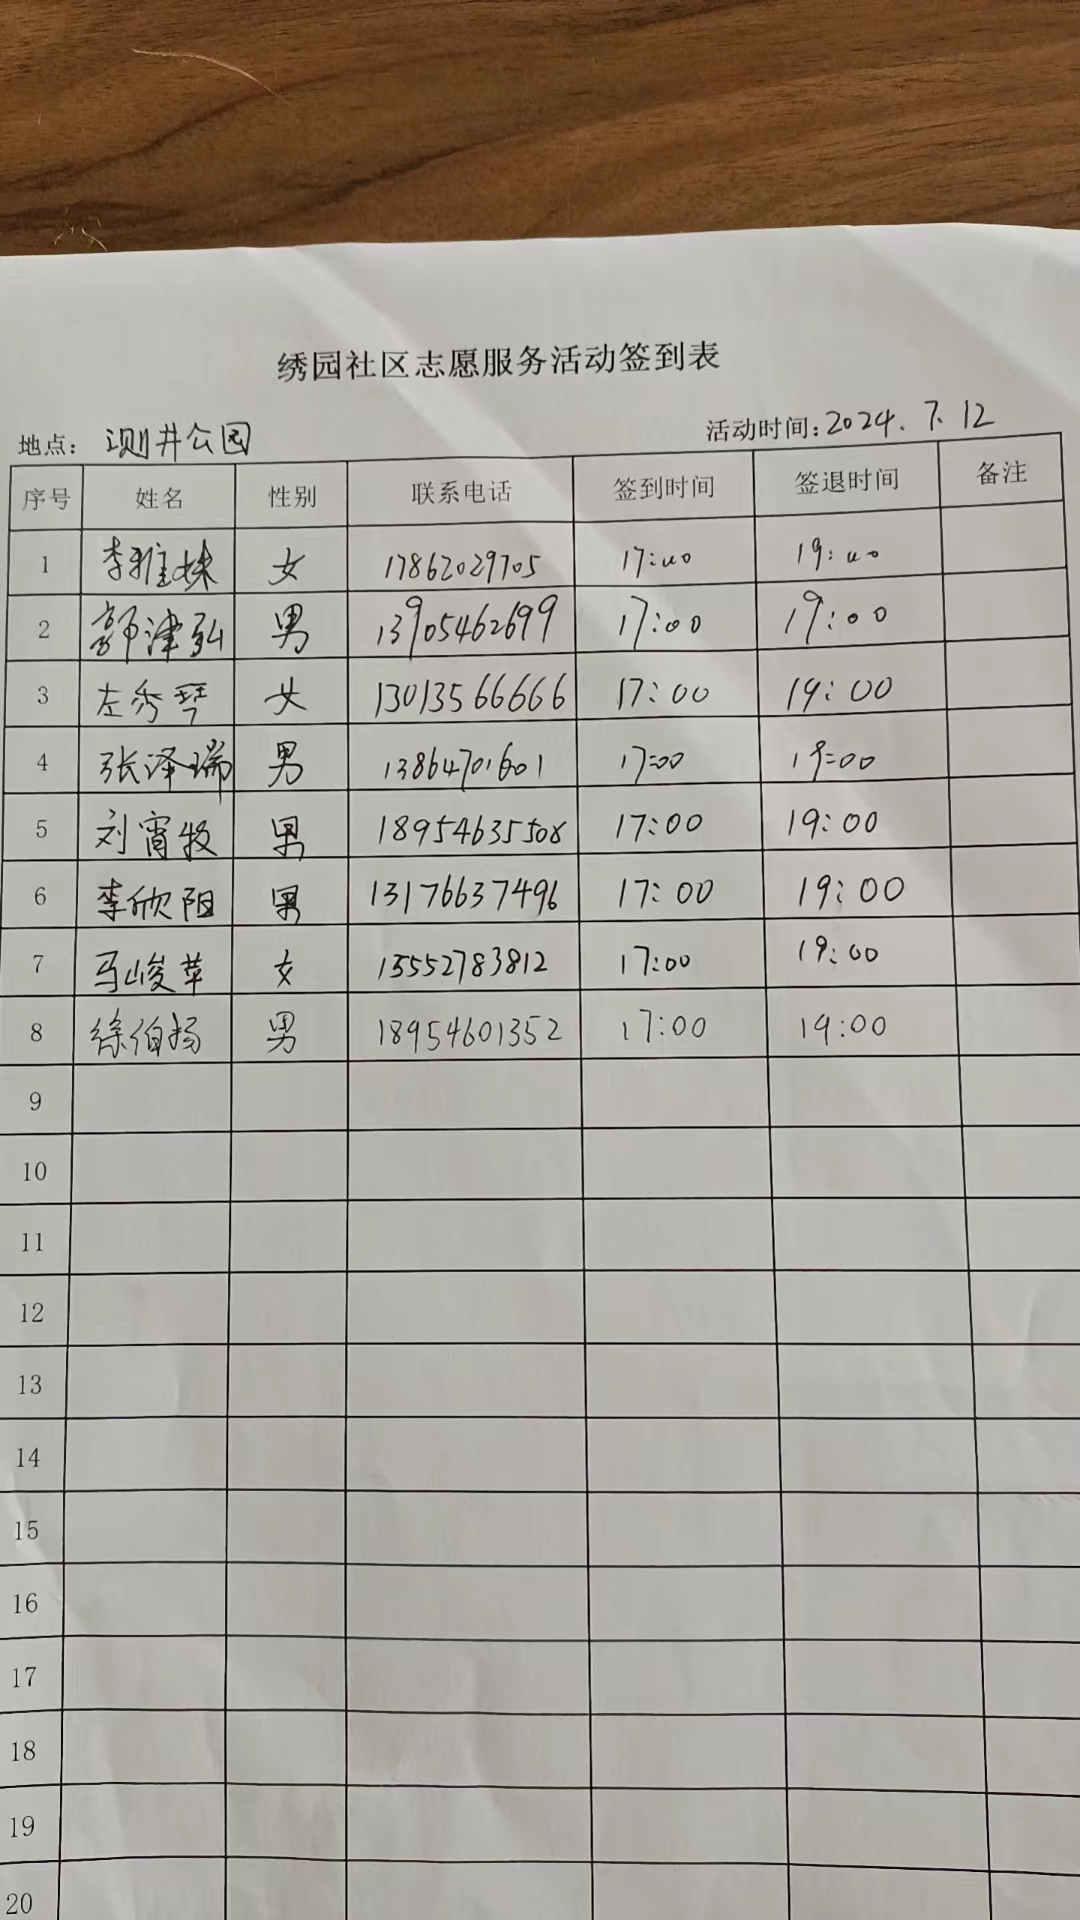 绣园社区志愿服务活动签到表
地点：测井公园 活动时间：2024.7.12
序号 姓名 性别 联系电话 签到时间 签退时间 备注
1 李雅妹 女 17862029705 17:00 19:00
2 郭津弘 男 13905462699 17:00 19:00
3 左秀琴 女 13013566666 17:00 19:00
4 张泽瑞 男 13864701601 17:00 19:00
5 刘宵牧 男 18954635508 17:00 19:00
6 李欣阳 男 13176637496 17:00 19:00
7 马峻苹 女 15552783812 17:00 19:00
8 徐伯扬 男 18954601352 17:00 19:00
9
10
11
12
13
14
15
16
17
18
19
20